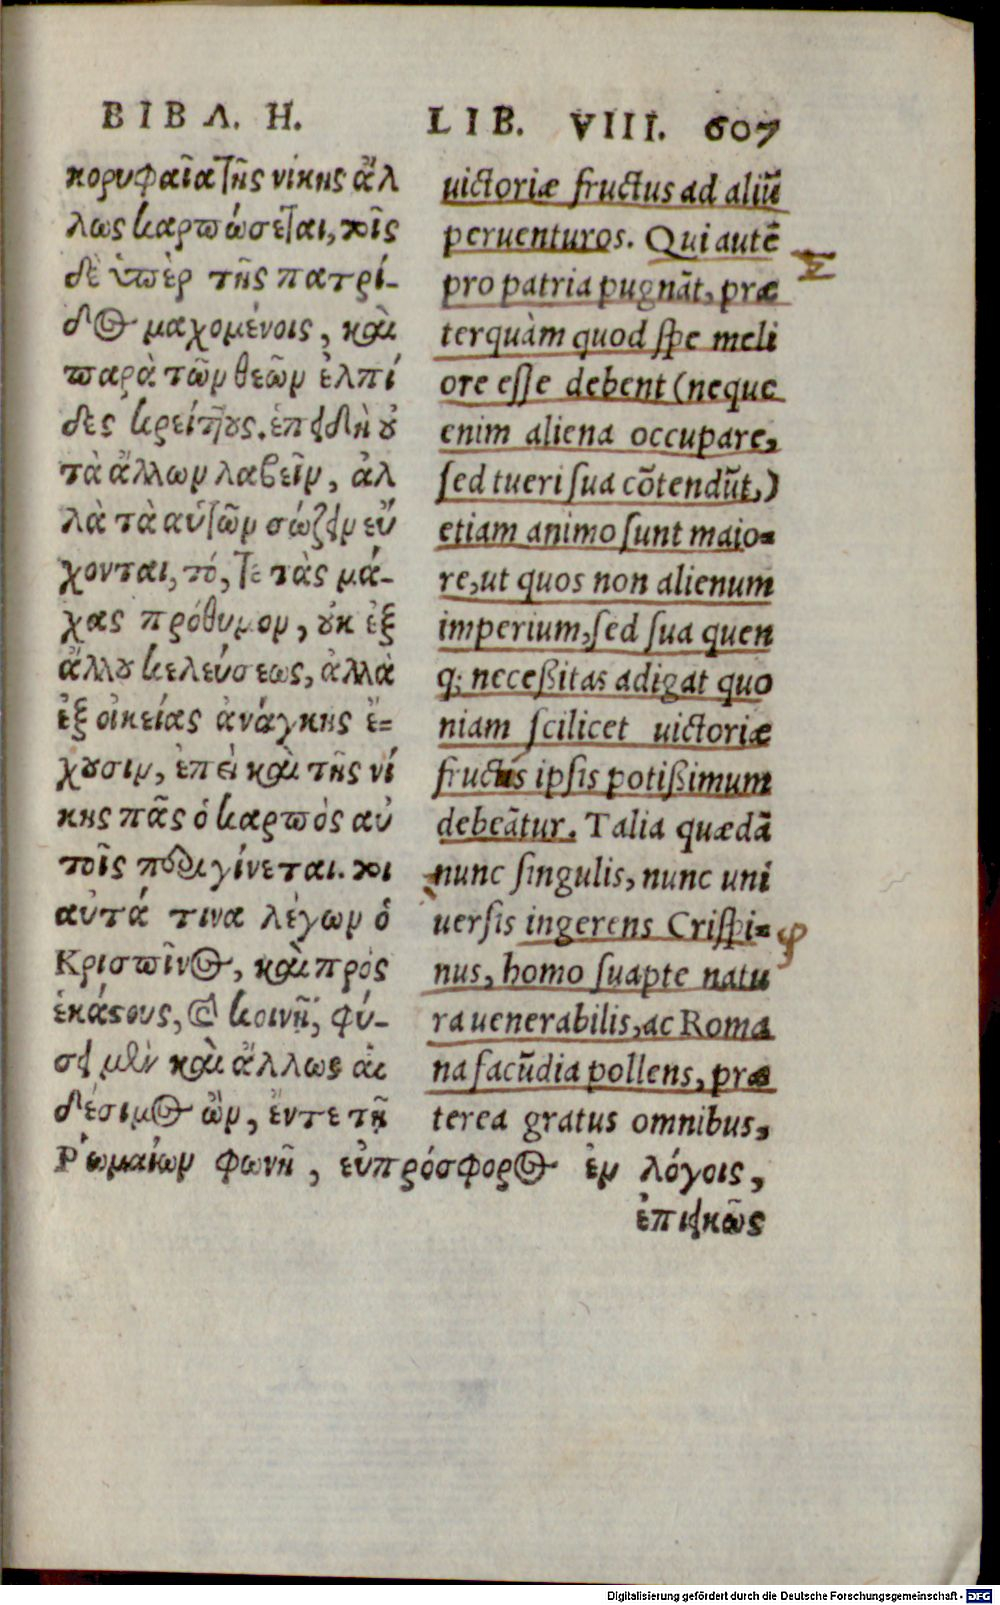 ΒΙΒΛ. Η.
κορυφαῖα τῆς νίκης ἄλ
λως καρπώσεται, τοῖς
δὲ ὑπὲρ τῆς πατρί-
δος μαχομένοις, καὶ
παρὰ τῶν θεῶν ἐλπί
δες κρείττους. ἐπειδὴ οὐ
τὰ ἄλλων λαβεῖν, ἀλ
λὰ τὰ αὑτῶν σώζειν εὔ
χονται, τό, τε τὰς μά-
χας πρόθυμον, οὐκ ἐξ
ἄλλου κελεύσεως, ἀλλὰ
ἐξ οἰκείας ἀνάγκης ἔ=
χουσιν, ἐπεὶ καὶ τῆς νί
κης πᾶς ὁ καρπὸς αὐ
τοῖς περιγίνεται. τοι
αὐτά τινα λέγων ὁ
Κρισπῖνος, καὶ πρὸς
ἑκάστους, καὶ κοινῇ, φύ-
σει μὲν καὶ ἄλλως αἰ
δέσιμος ὢν, ἔν τε τῇ
Ῥωμαίων φωνῇ, εὐπρόσφορος ἐν λόγοις,
ἐπιεικῶς
LIB. VIII. 607
uictoriæ fructus ad aliũ
peruenturos. Qui autẽ
pro patria pugnãt, præ
terquàm quod spe meli
ore esse debent (neque
enim aliena occupare,
sed tueri sua cõtendũt,)
etiam animo sunt maio=
re, ut quos non alienum
imperium, sed sua quen
q; neceßitas adigat quo
niam scilicet uictoriæ
fructus ipsis potißimum
debeãtur. Talia quædã
nunc singulis, nunc uni
uersis ingerens Crispi=
nus, homo suapte natu
ra uenerabilis, ac Roma
na facũdia pollens, præ
terea gratus omnibus,
Digitalisierung gefördert durch die Deutsche Forschungsgemeinschaft - DFG